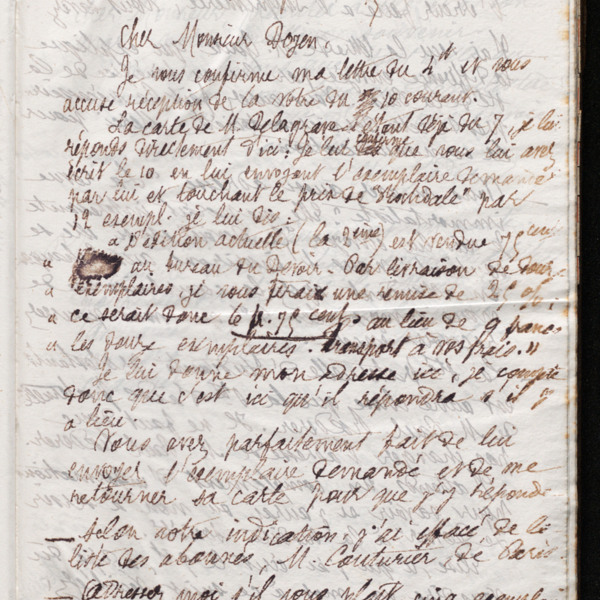 Cher Monsieur Dozen,
Je vous confirme ma lettre du 4 et vous
accuse réception de la votre du 10 courant.
La carte de M. Delagrave étant du 7, je lui
réponds directement d'ici: Je lui confirme que vous lui avez
écrit le 10 en lui envoyant l'exemplaire demandé
par lui et touchant le prix de par
12 exempl. je lui dis:
« l'édition actuelle (la 2ème) est vendue 75 cent
« au bureau du Devoir. Par livraison de douze
« exemplaires, je vous ferais une remise de 25 %,
« ce serait donc 6 75 cent. au lieu de 9 francs
« les douze exemplaires. transport à vos frais. »
Je lui donne mon adresse ici, je compte
donc que c'est ici qu'il répondra s'il y
a lieu.
Vous avez parfaitement fait de lui
envoyer l'exemplaire demandé et de me
retourner sa carte pour que j'y réponde.
— Selon votre indication, j'ai effacé de la
liste des abonnés, M. Couturier, de Paris.
— Adressez moi s'il vous plaît cinq